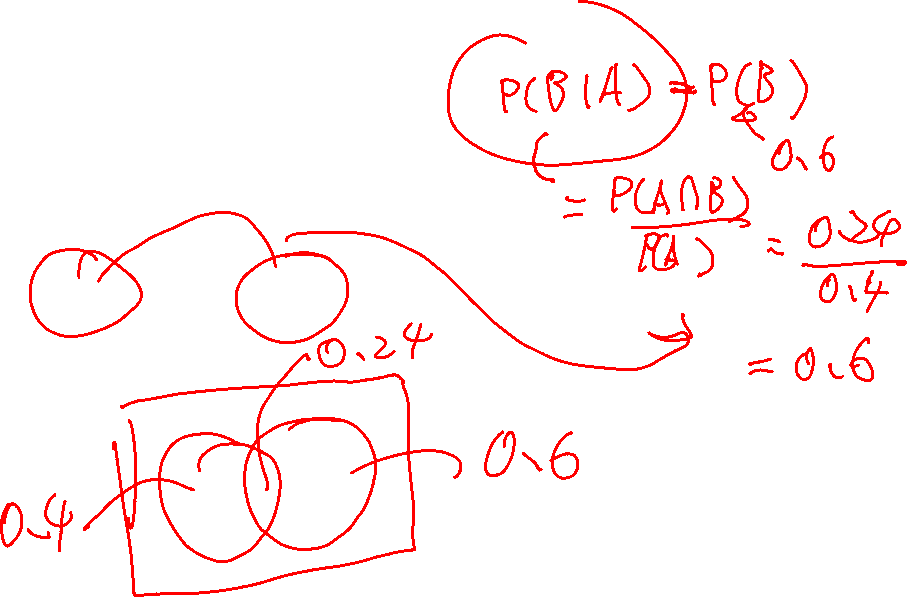 P(B|A) = P(B)
0.6
= P(A∩B) / P(A) = 0.24 / 0.4
= 0.6
0.24
0.6
0.4